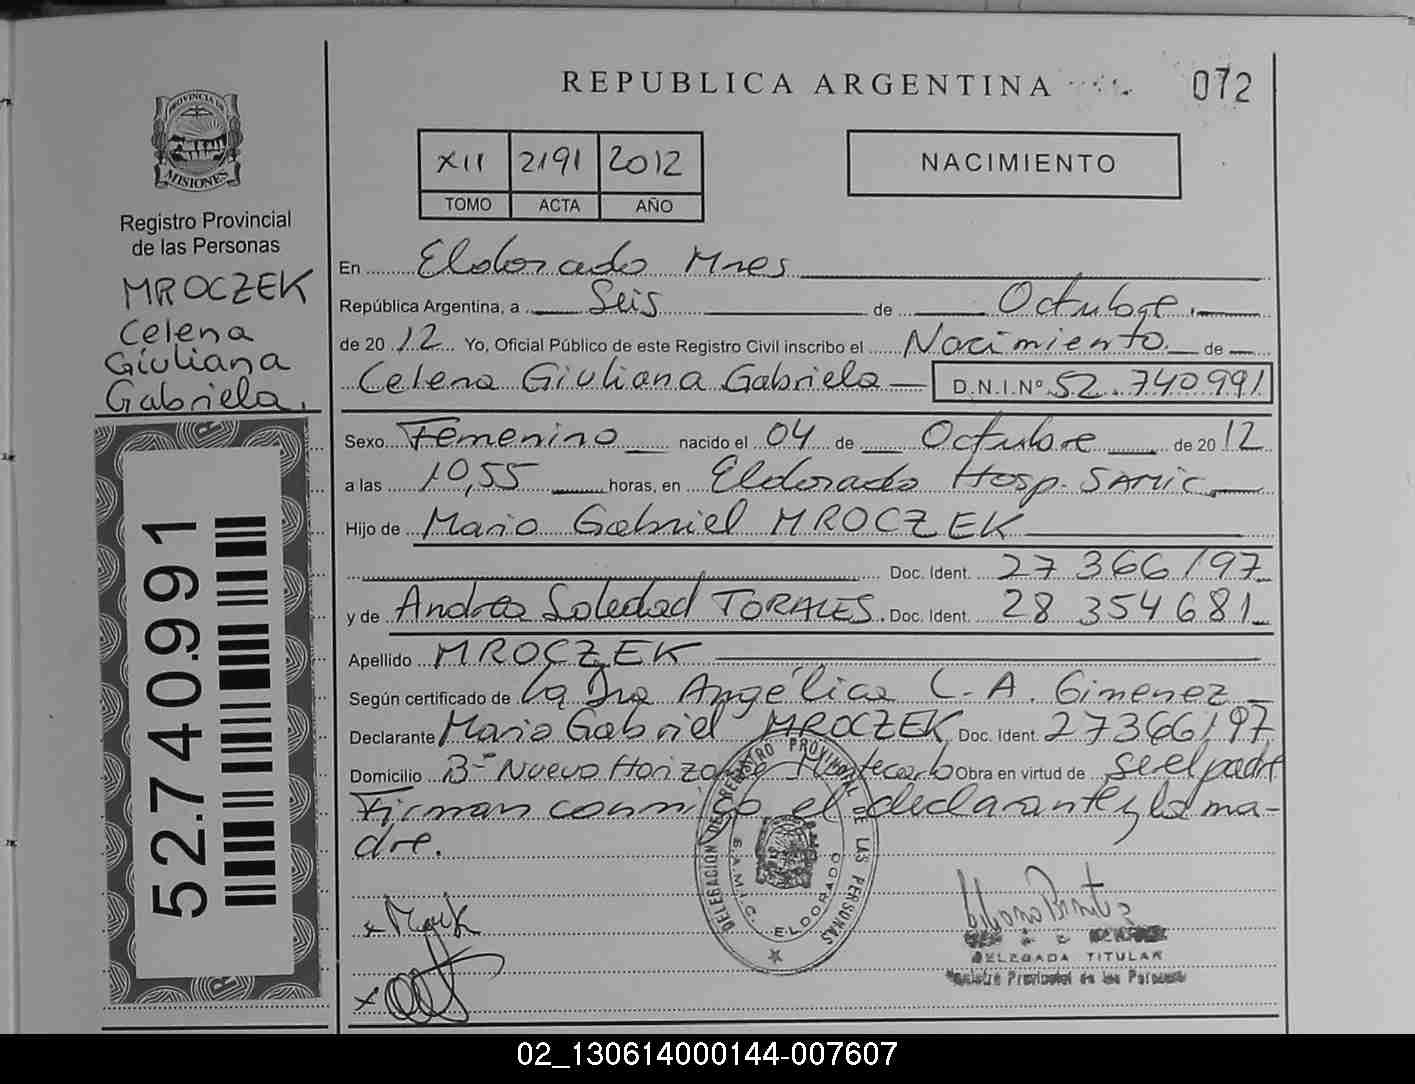 REPUBLICA ARGENTINA
072
PROVINCIA DE
MISIONES
Registro Provincial
de las Personas
MROCZEK
Celena
Giuliana
Gabriela.
52.740.991
XII 2191 2012
TOMO ACTA AÑO
NACIMIENTO
En Eldorado Mnes
República Argentina, a Seis de Octubre
de 2012 Yo, Oficial Público de este Registro Civil inscribo el Nacimiento de
Celena Giuliana Gabriela D.N.I.Nº 52.740991
Sexo Femenino nacido el 04 de Octubre de 2012
a las 10,55 horas, en Eldorado Hosp. SAMIC
Hijo de Mario Gabriel MROCZEK
Doc. Ident. 27 366 197
y de Andrea Soledad TORALES. Doc. Ident. 28 354 681
Apellido MROCZEK
Según certificado de La Dra Angélica C. A. Gimenez
Declarante Mario Gabriel MROCZEK Doc. Ident. 27366197
Domicilio Bº Nuevo Horizonte Montecarlo Obra en virtud de ser el padre
Firman conmigo el declarante y la ma-
dre.
DELEGACIÓN DEL REGISTRO PROVINCIAL DE LAS PERSONAS
S.A.M.I.C. ELDORADO
DELEGADA TITULAR
Registro Provincial de las Personas
02_130614000144-007607